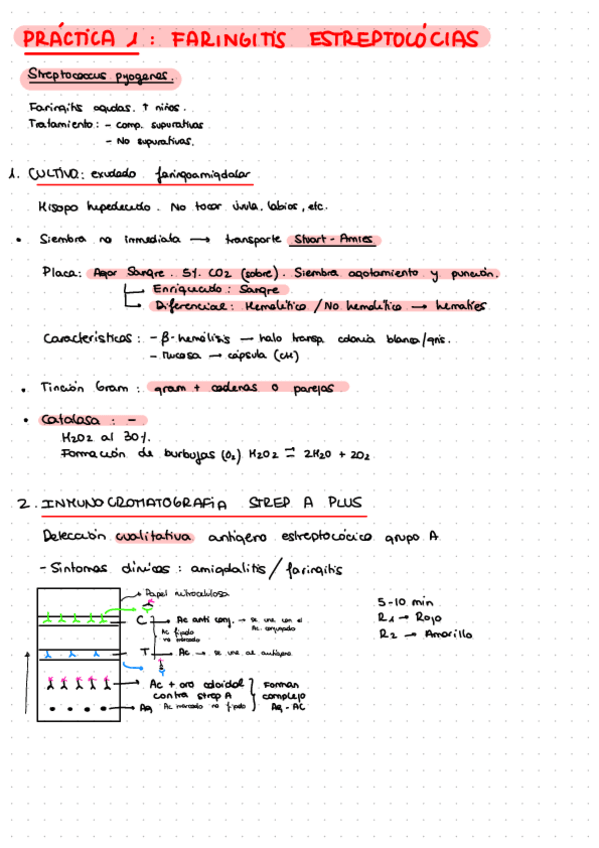 PRÁCTICA 1: FARINGITIS ESTREPTOCÓCIAS
Streptococcus pyogenes.
Faringitis agudas. ↑ niños.
Tratamiento: - comp. supurativas
- No supurativas.
1. CULTIVO: exudado faringoamigdalar
Hisopo humedecido. No tocar úvula, labios, etc.
• Siembra no inmediata → transporte Stuart-Amies
Placa: Agar Sangre. 5% CO2 (sobre). Siembra agotamiento y punción.
Enriquecido: Sangre
Diferencial: Hemolítico / No hemolítico → hematíes
Características: - β-hemólisis → halo transp. colonia blanca/gris.
- Mucosa → cápsula (CH)
• Tinción Gram: gram + cadenas o parejas
• Catalasa: -
H2O2 al 30%.
Formación de burbujas (O2) H2O2 ⇌ 2H2O + 2O2
2. INMUNOCROMATOGRAFIA STREP A PLUS
Detección cualitativa antígeno estreptocócico grupo A
- Síntomas clínicos: amigdalitis / faringitis
Papel nitrocelulosa
C → Ac anti conj. → se une con el Ac. conjugado
Ac fijado no marcado
T → Ac → se une al antígeno
Ac + oro coloidal contra strep A
Ag Ac marcado no fijado
Forman complejo Ag-AC
5-10 min
R1 → Rojo
R2 → Amarillo